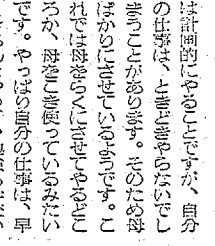 は計画的にやることですが、自分
の仕事は、ときどきやらないでし
まうことがあります。そのため母
ばかりにさせているようです。こ
れでは母をらくにさせてやるどこ
ろか、母をこき使っているみたい
です。やっぱり自分の仕事は、早